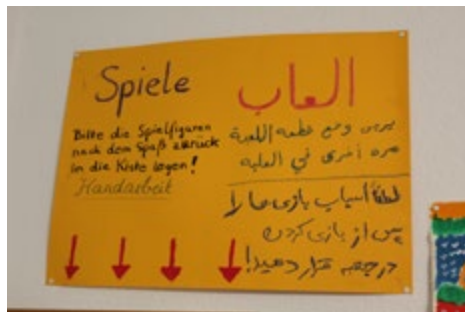 Spiele
Bitte die Spielfiguren
nach dem Spaß zurück
in die Kiste legen!
Handarbeit
العاب
يرجى وضع قطعه اللعبة
مره اخرى في العلبه
لطفاً اسباب بازی ها را
پس از بازی کردن
در جعبه قرار دهید!